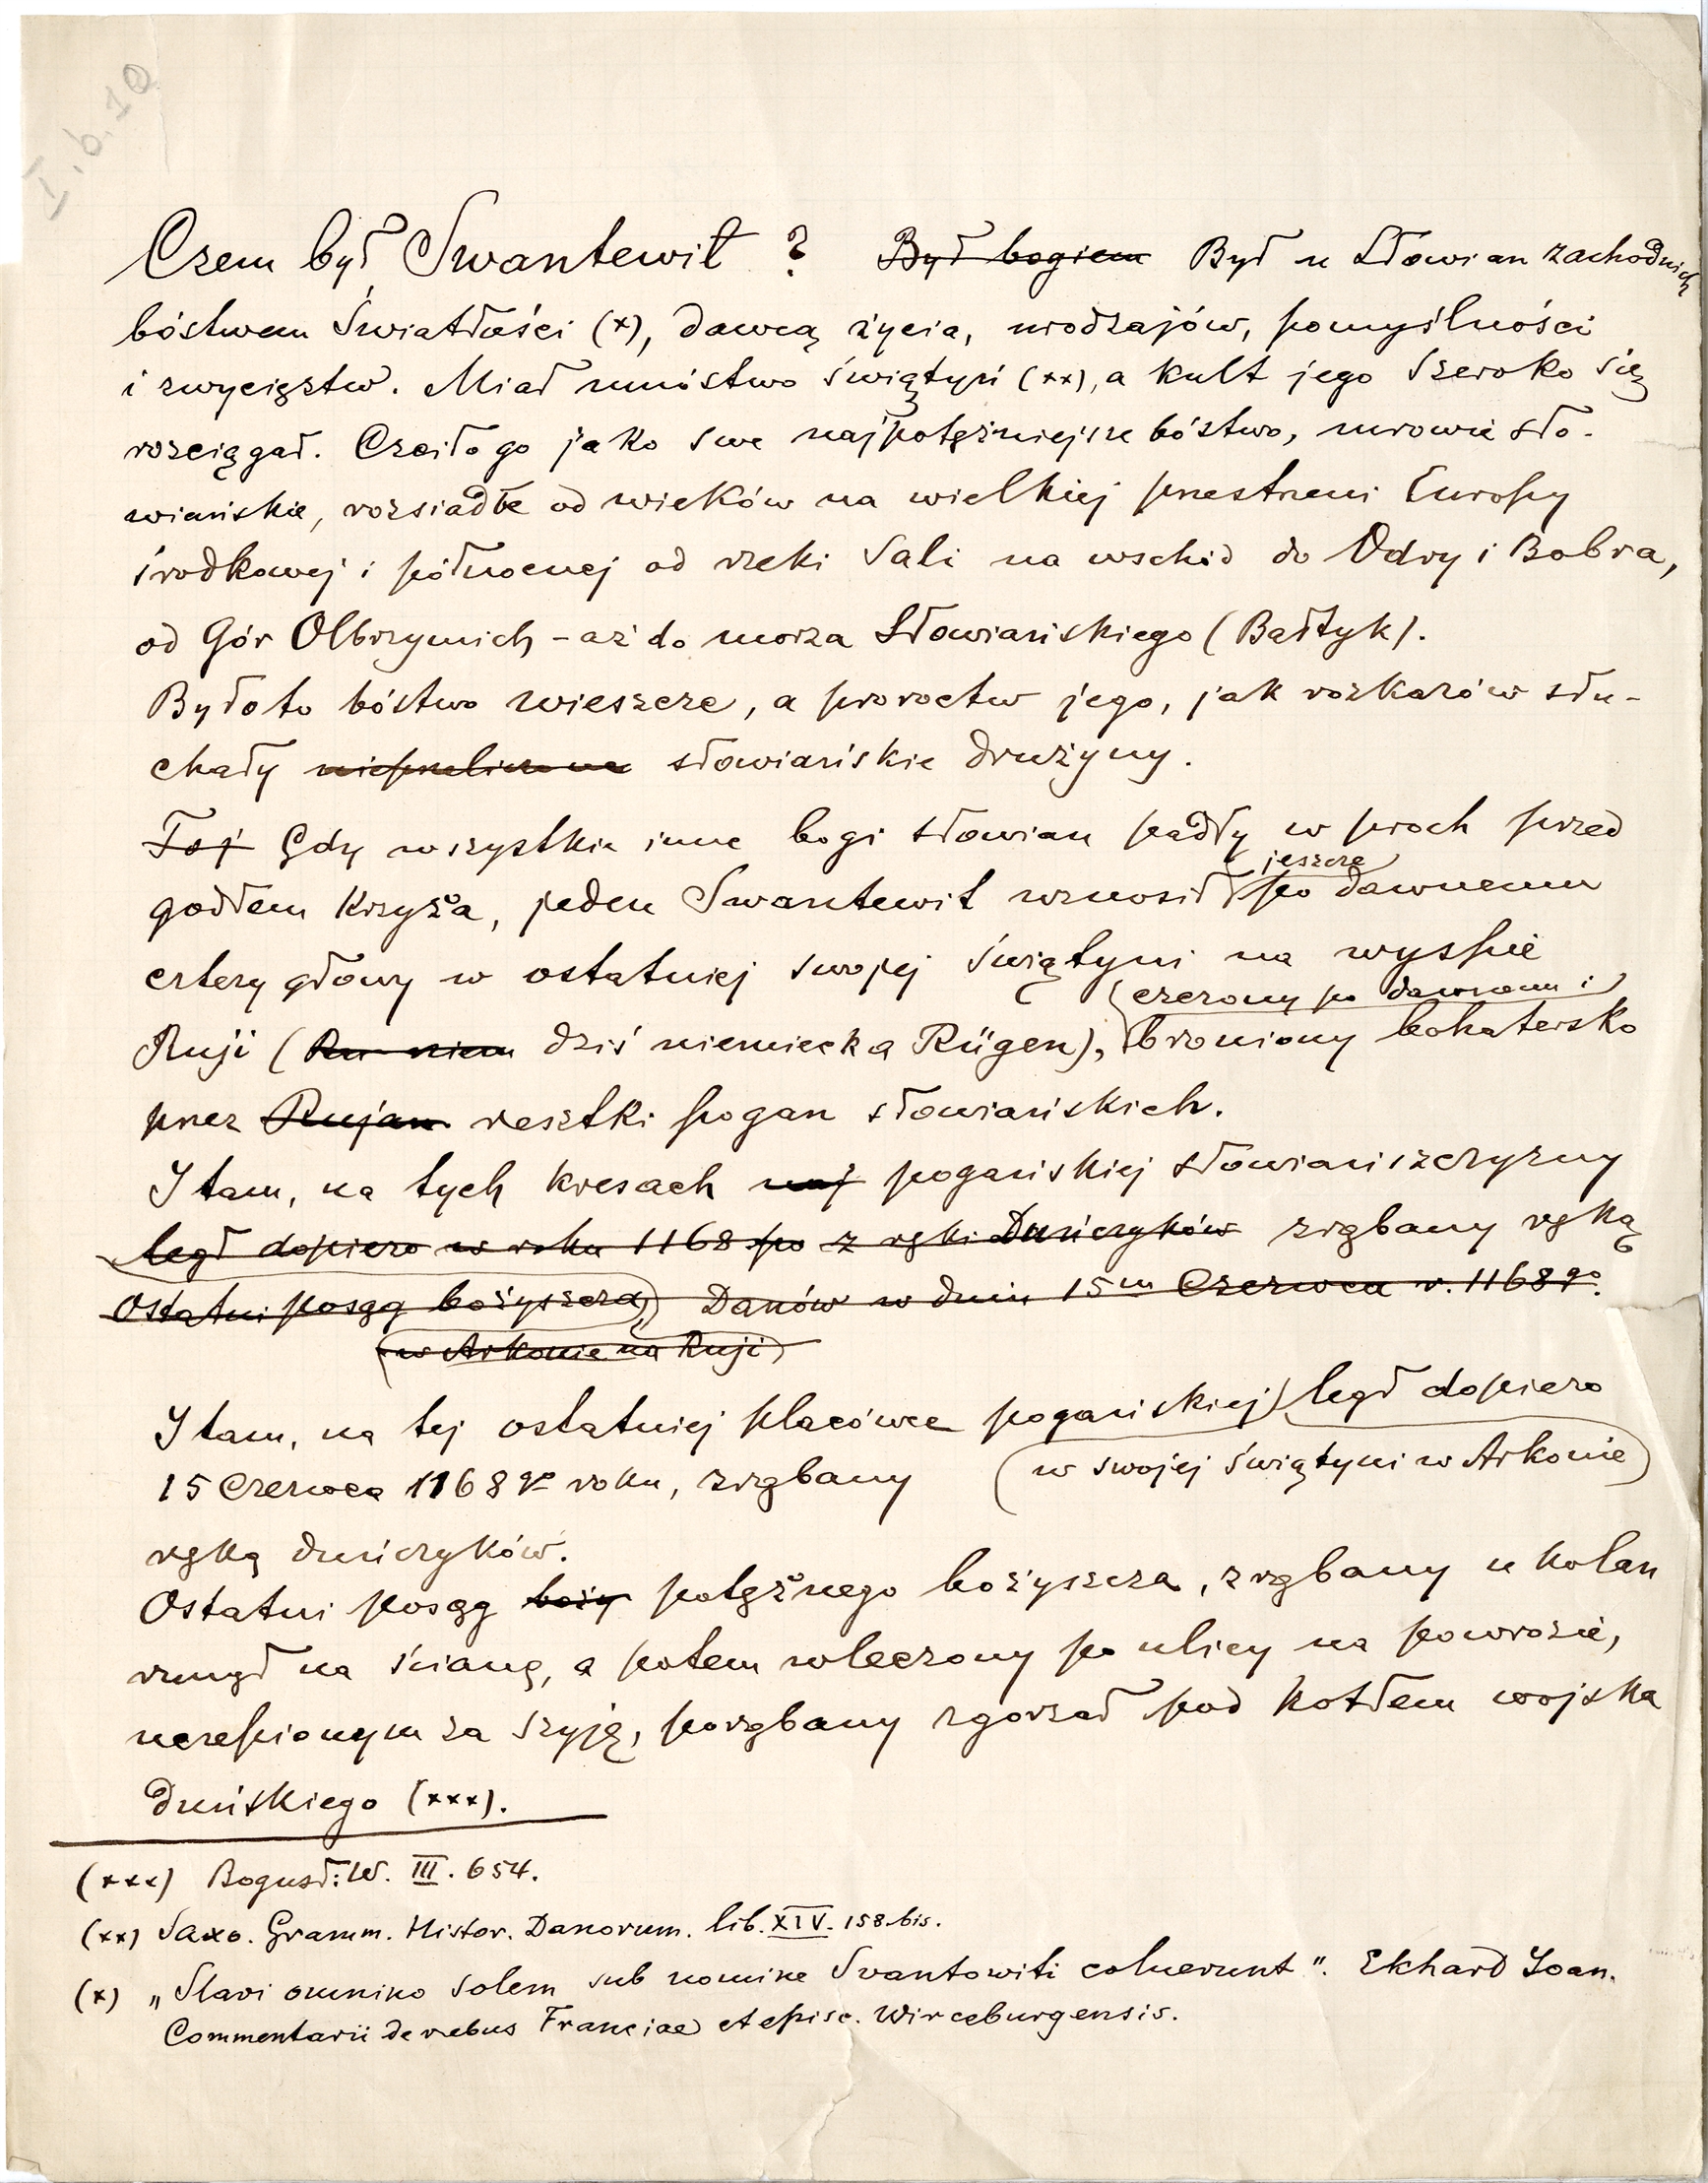 I.b.10
Czem był Swantewit ? Był bogiem Był u Słowian zachodnich
bóstwem Światłości (x), dawcą życia, urodzajów, pomyślności
i zwycięztw. Miał mnóstwo świątyń (xx), a kult jego szeroko się
rozciągał. Czciło go jako swe najpotężniejsze bóstwo, mrowie sło-
wiańskie, rozsiadłe od wieków na wielkiej przestrzeni Europy
środkowej i północnej od rzeki Sali na wschód do Odry i Bobra,
od Gór Olbrzymich – aż do morza Słowiańskiego (Bałtyk).
Było to bóstwo wieszcze, a proroctw jego, jak rozkazów słu-
chały niezliczone słowiańskie drużyny.
Toj Gdy wszystkie inne bogi słowian padły w proch przed
jeszcze
godłem Krzyża, jeden Swantewit wznosił po dawnemu
cztery głowy w ostatniej swojej świątyni na wyspie
czczony po dawnemu i
Ruji (Ru niem dziś niemiecka Rügen), broniony bohatersko
przez Rujan resztki pogan słowiańskich.
I tam, na tych kresach naj pogańskiej słowiańszczyzny
legł dopiero w roku 1168 po z ręki Duńczyków zrąbany ręką
Ostatni posąg bożyszcza, Danów w dniu 15m Czerwca r. 1168go.
w Arkonie na Ruji
I tam, na tej ostatniej placówce pogańskiej legł dopiero
w swojej świątyni w Arkonie
15 Czerwca 1168go roku, zrąbany
ręką duńczyków.
Ostatni posąg boży potężnego bożyszcza, zrąbany u kolan
runął na ścianę, a potem wleczony po ulicy na powrozie,
uczepionym za szyję, porąbany zgorzał pod kotłem wojska
duńskiego (xxx).
(xxx) Bogusł: W. III. 654.
(xx) Saxo. Gramm. Histor. Danorum. lib. XIV. 158 bis.
(x) „Slavi omnino solem sub nomine Svantowiti coluerunt". Ekhard Joan.
Commentarii de rebus Franciae et episc. Wirceburgensis.